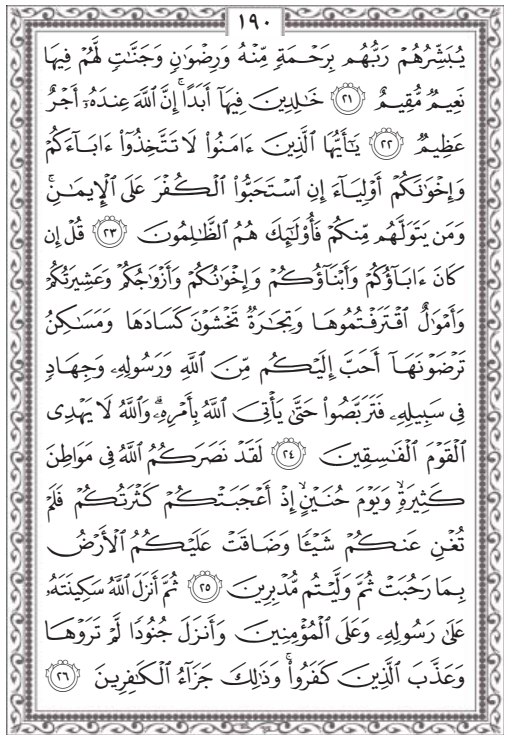 ١٩٠
يُبَشِّرُهُمْ رَبُّهُم بِرَحْمَةٍ مِّنْهُ وَرِضْوَٰنٍ وَجَنَّٰتٍ لَّهُمْ فِيهَا
نَعِيمٌ مُّقِيمٌ ٢١ خَٰلِدِينَ فِيهَآ أَبَدًا ۚ إِنَّ ٱللَّهَ عِندَهُۥٓ أَجْرٌ
عَظِيمٌ ٢٢ يَٰٓأَيُّهَا ٱلَّذِينَ ءَامَنُوا۟ لَا تَتَّخِذُوٓا۟ ءَابَآءَكُمْ
وَإِخْوَٰنَكُمْ أَوْلِيَآءَ إِنِ ٱسْتَحَبُّوا۟ ٱلْكُفْرَ عَلَى ٱلْإِيمَٰنِ ۚ
وَمَن يَتَوَلَّهُم مِّنكُمْ فَأُو۟لَٰٓئِكَ هُمُ ٱلظَّٰلِمُونَ ٢٣ قُلْ إِن
كَانَ ءَابَآؤُكُمْ وَأَبْنَآؤُكُمْ وَإِخْوَٰنُكُمْ وَأَزْوَٰجُكُمْ وَعَشِيرَتُكُمْ
وَأَمْوَٰلٌ ٱقْتَرَفْتُمُوهَا وَتِجَٰرَةٌ تَخْشَوْنَ كَسَادَهَا وَمَسَٰكِنُ
تَرْضَوْنَهَآ أَحَبَّ إِلَيْكُم مِّنَ ٱللَّهِ وَرَسُولِهِۦ وَجِهَادٍ
فِى سَبِيلِهِۦ فَتَرَبَّصُوا۟ حَتَّىٰ يَأْتِىَ ٱللَّهُ بِأَمْرِهِۦ ۗ وَٱللَّهُ لَا يَهْدِى
ٱلْقَوْمَ ٱلْفَٰسِقِينَ ٢٤ لَقَدْ نَصَرَكُمُ ٱللَّهُ فِى مَوَاطِنَ
كَثِيرَةٍ ۙ وَيَوْمَ حُنَيْنٍ ۙ إِذْ أَعْجَبَتْكُمْ كَثْرَتُكُمْ فَلَمْ
تُغْنِ عَنكُمْ شَيْـًٔا وَضَاقَتْ عَلَيْكُمُ ٱلْأَرْضُ
بِمَا رَحُبَتْ ثُمَّ وَلَّيْتُم مُّدْبِرِينَ ٢٥ ثُمَّ أَنزَلَ ٱللَّهُ سَكِينَتَهُۥ
عَلَىٰ رَسُولِهِۦ وَعَلَى ٱلْمُؤْمِنِينَ وَأَنزَلَ جُنُودًا لَّمْ تَرَوْهَا
وَعَذَّبَ ٱلَّذِينَ كَفَرُوا۟ ۚ وَذَٰلِكَ جَزَآءُ ٱلْكَٰفِرِينَ ٢٦